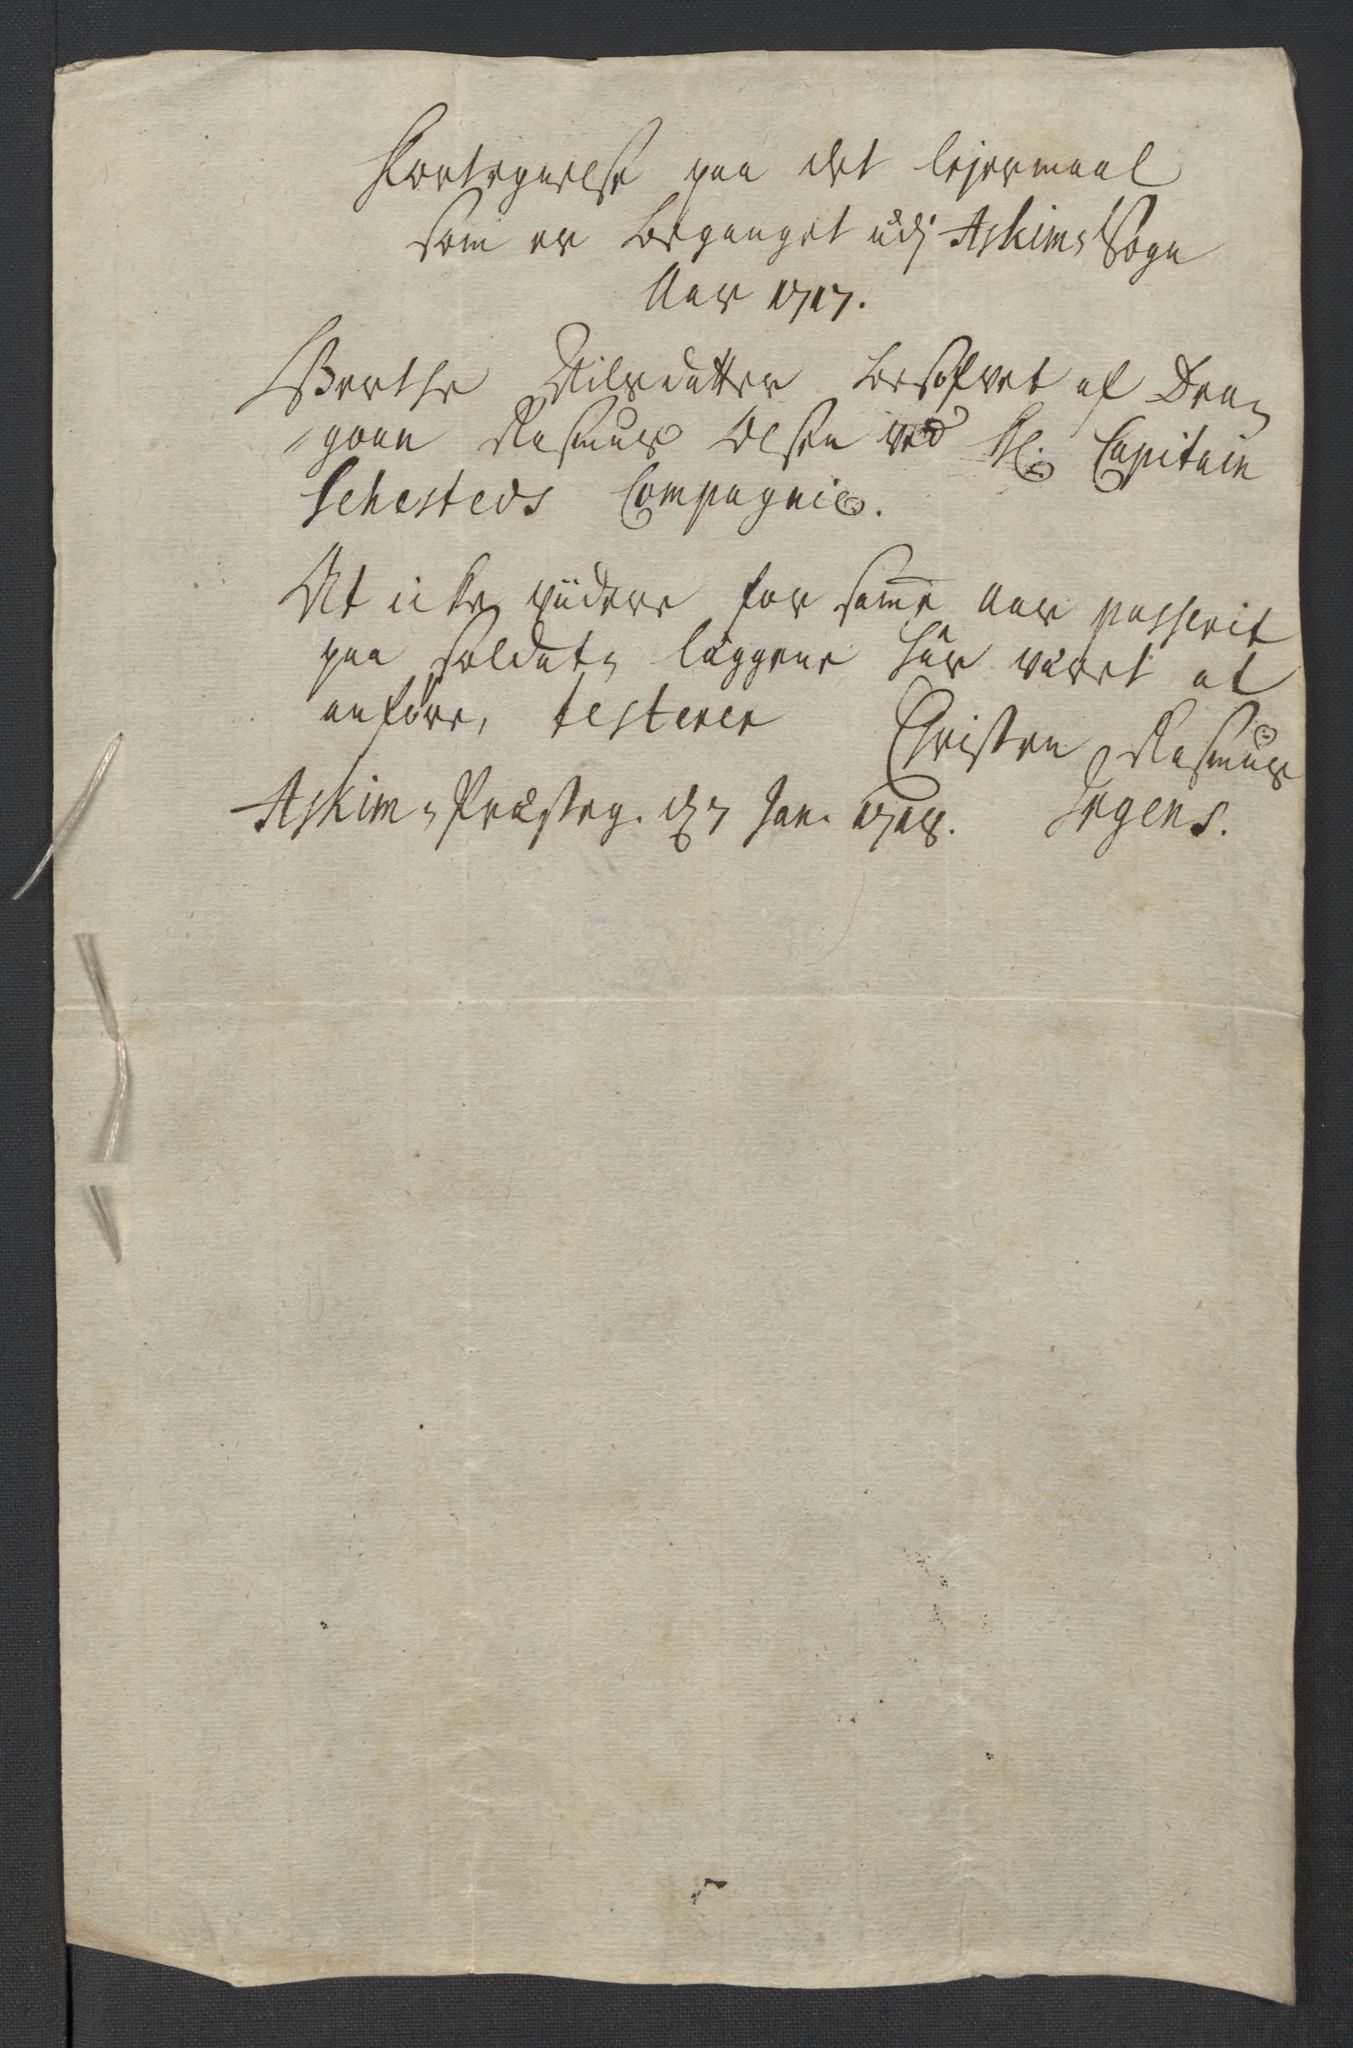 Fortegnelse paa det lejermaal
som er begaaget udj Askims Sogn
Aar 1717.
Berthe Nilsdatter besofvet af Dra-
goun Rasmus Olsen ved Hr. Capitain
Schesteds Compagnie.
At icke viidere for samme Aar passerit
paa soldat-læggene har været at
anføre, testerer Christen Rasmus
Askims Præsteg. d 7 Jan. 1718. Jrgens.